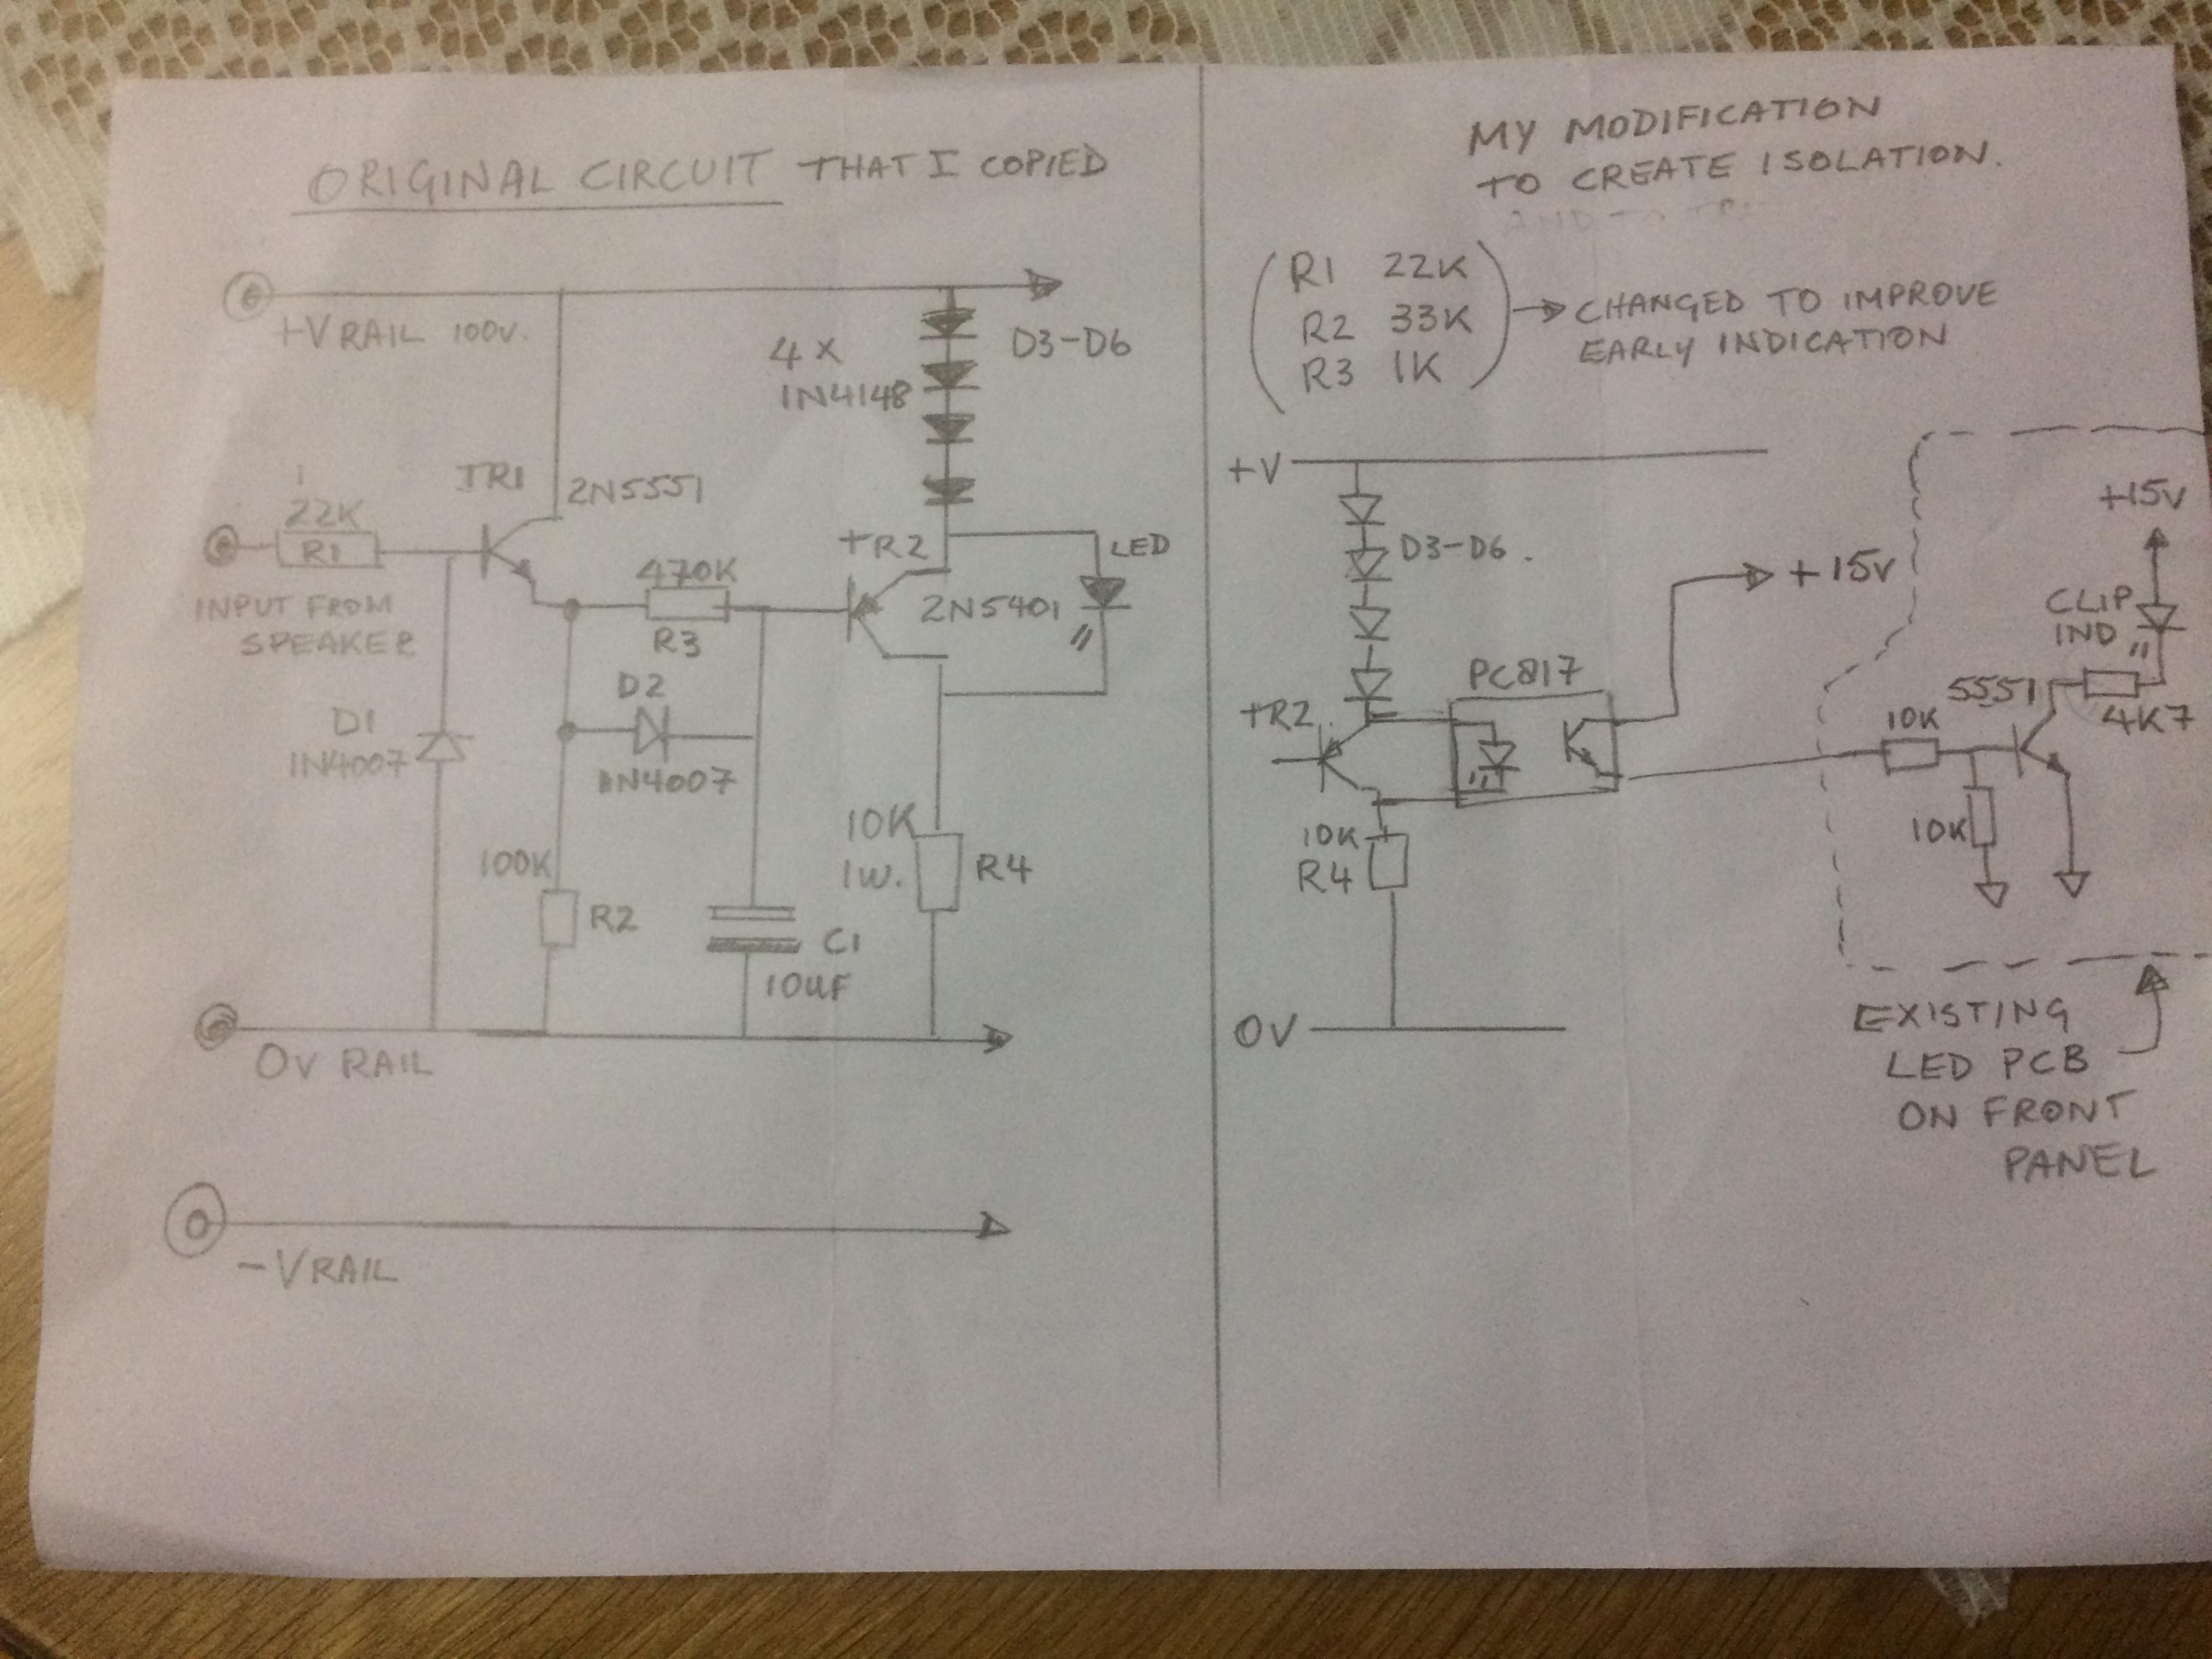 ORIGINAL CIRCUIT THAT I COPIED
+VRAIL 100V.
4X
1N4148
D3-D6
TR1
2N5551
22K
R1
INPUT FROM
SPEAKER
470K
R3
TR2
2N5401
LED
D1
1N4007
D2
1N4007
100K
R2
C1
10UF
10K
1W.
R4
0V RAIL
-VRAIL
MY MODIFICATION
TO CREATE ISOLATION.
R1 22K
R2 33K
R3 1K
CHANGED TO IMPROVE
EARLY INDICATION
+V
D3-D6.
+15V
PC817
TR2.
10K
R4
0V
+15V
CLIP
IND
5551
4K7
10K
10K
EXISTING
LED PCB
ON FRONT
PANEL